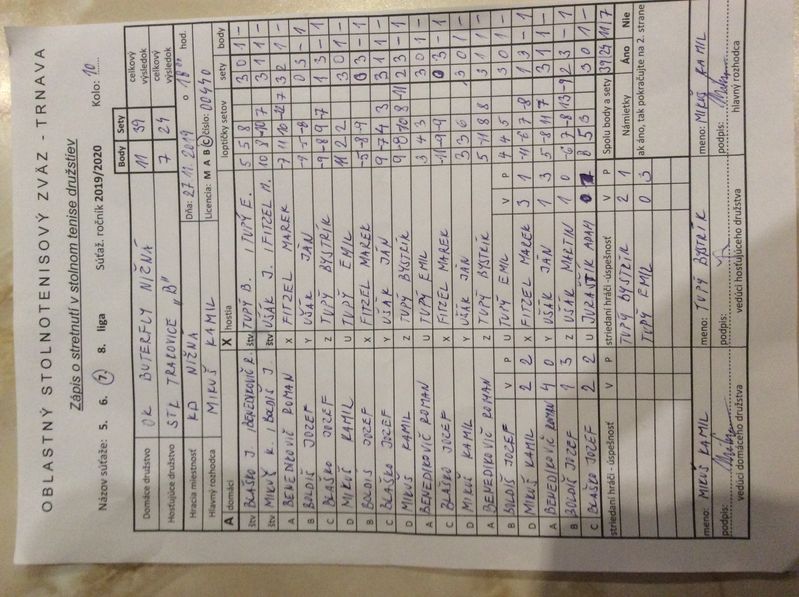 OBLASTNÝ STOLNOTENISOVÝ ZVÄZ - TRNAVA
Zápis o stretnutí v stolnom tenise družstiev
Názov súťaže: 5. 6. 7. 8. liga Súťaž. ročník 2019/2020 Kolo: 10
Body Sety celkový výsledok celkový výsledok
Domáce družstvo OK BUTERFLY NIŽNÁ 11 39
Hosťujúce družstvo STK TRAKOVICE "B" 7 24
Hracia miestnosť KD NIŽNÁ Dňa: 27.11.2019 o hod.
Hlavný rozhodca MIKUŠ KAMIL Licencia: M A B C číslo: 00440
A domáci X hostia loptičky setov sety body
štv BLAŠKO J. BENEDIKOVIČ R. štv TUPÝ B. TUPÝ E. 5 5 8 3 0 1 -
štv MIKUŠ K. BOLDIŠ J. štv UŠÁK J. FITZEL M. 3 1 1 -
A BENEDIKOVIČ ROMAN X FITZEL MAREK 3 2 1 -
B BOLDIŠ JOZEF Y UŠÁK JÁN 0 3 - 1
C BLAŠKO JOZEF Z TUPÝ BYSTRÍK -9 -8 9 -7 1 3 - 1
D MIKUŠ KAMIL U TUPÝ EMIL 11 2 2 3 0 1 -
B BOLDIŠ JOZEF X FITZEL MAREK -5 -8 -9 0 3 - 1
C BLAŠKO JOZEF Y UŠÁK JÁN 9 -7 4 3 3 1 1 -
D MIKUŠ KAMIL Z TUPÝ BYSTRÍK 9 -8 10 8 -11 2 3 - 1
A BENEDIKOVIČ ROMAN U TUPÝ EMIL 3 4 3 3 0 1 -
C BLAŠKO JOZEF X FITZEL MAREK -11 -9 -9 0 3 - 1
D MIKUŠ KAMIL Y UŠÁK JÁN 3 3 6 3 0 1 -
A BENEDIKOVIČ ROMAN Z TUPÝ BYSTRÍK 5 -11 8 8 3 1 1 -
B BOLDIŠ JOZEF U TUPÝ EMIL 4 4 5 3 0 1 -
V P V P
D MIKUŠ KAMIL 2 2 X FITZEL MAREK 3 1 -11 -6 7 -8 1 3 - 1
A BENEDIKOVIČ ROMAN 4 0 Y UŠÁK JÁN 1 3 5 -8 11 7 3 1 1 -
B BOLDIŠ JOZEF 1 3 Z UŠÁK MARTIN 1 0 -6 7 -8 13 -9 2 3 - 1
C BLAŠKO JOZEF 2 2 U ADAM 8 5 3 3 0 1 -
striedaní hráči - úspešnosť V P striedaní hráči - úspešnosť V P Spolu body a sety 39 24 11 7
TUPÝ BYSTRÍK 2 1 Námietky Áno Nie
TUPÝ EMIL 0 3 ak áno, tak pokračujte na 2. strane
meno: MIKUŠ KAMIL meno: TUPÝ BYSTRÍK meno: MIKUŠ KAMIL
podpis: podpis: podpis:
vedúci domáceho družstva vedúci hosťujúceho družstva hlavný rozhodca